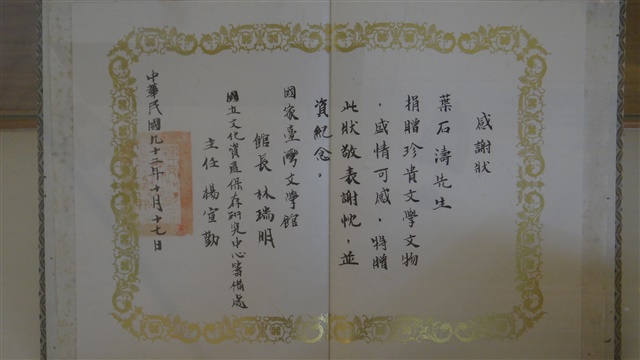 感謝狀
葉石濤先生
捐贈珍貴文學文物
，盛情可感，特贈
此狀敬表謝忱，並
資紀念。
國家臺灣文學館
館長 林瑞明
國立文化資產保存研究中心籌備處
主任 楊宣勤
中華民國九十二年十月十七日